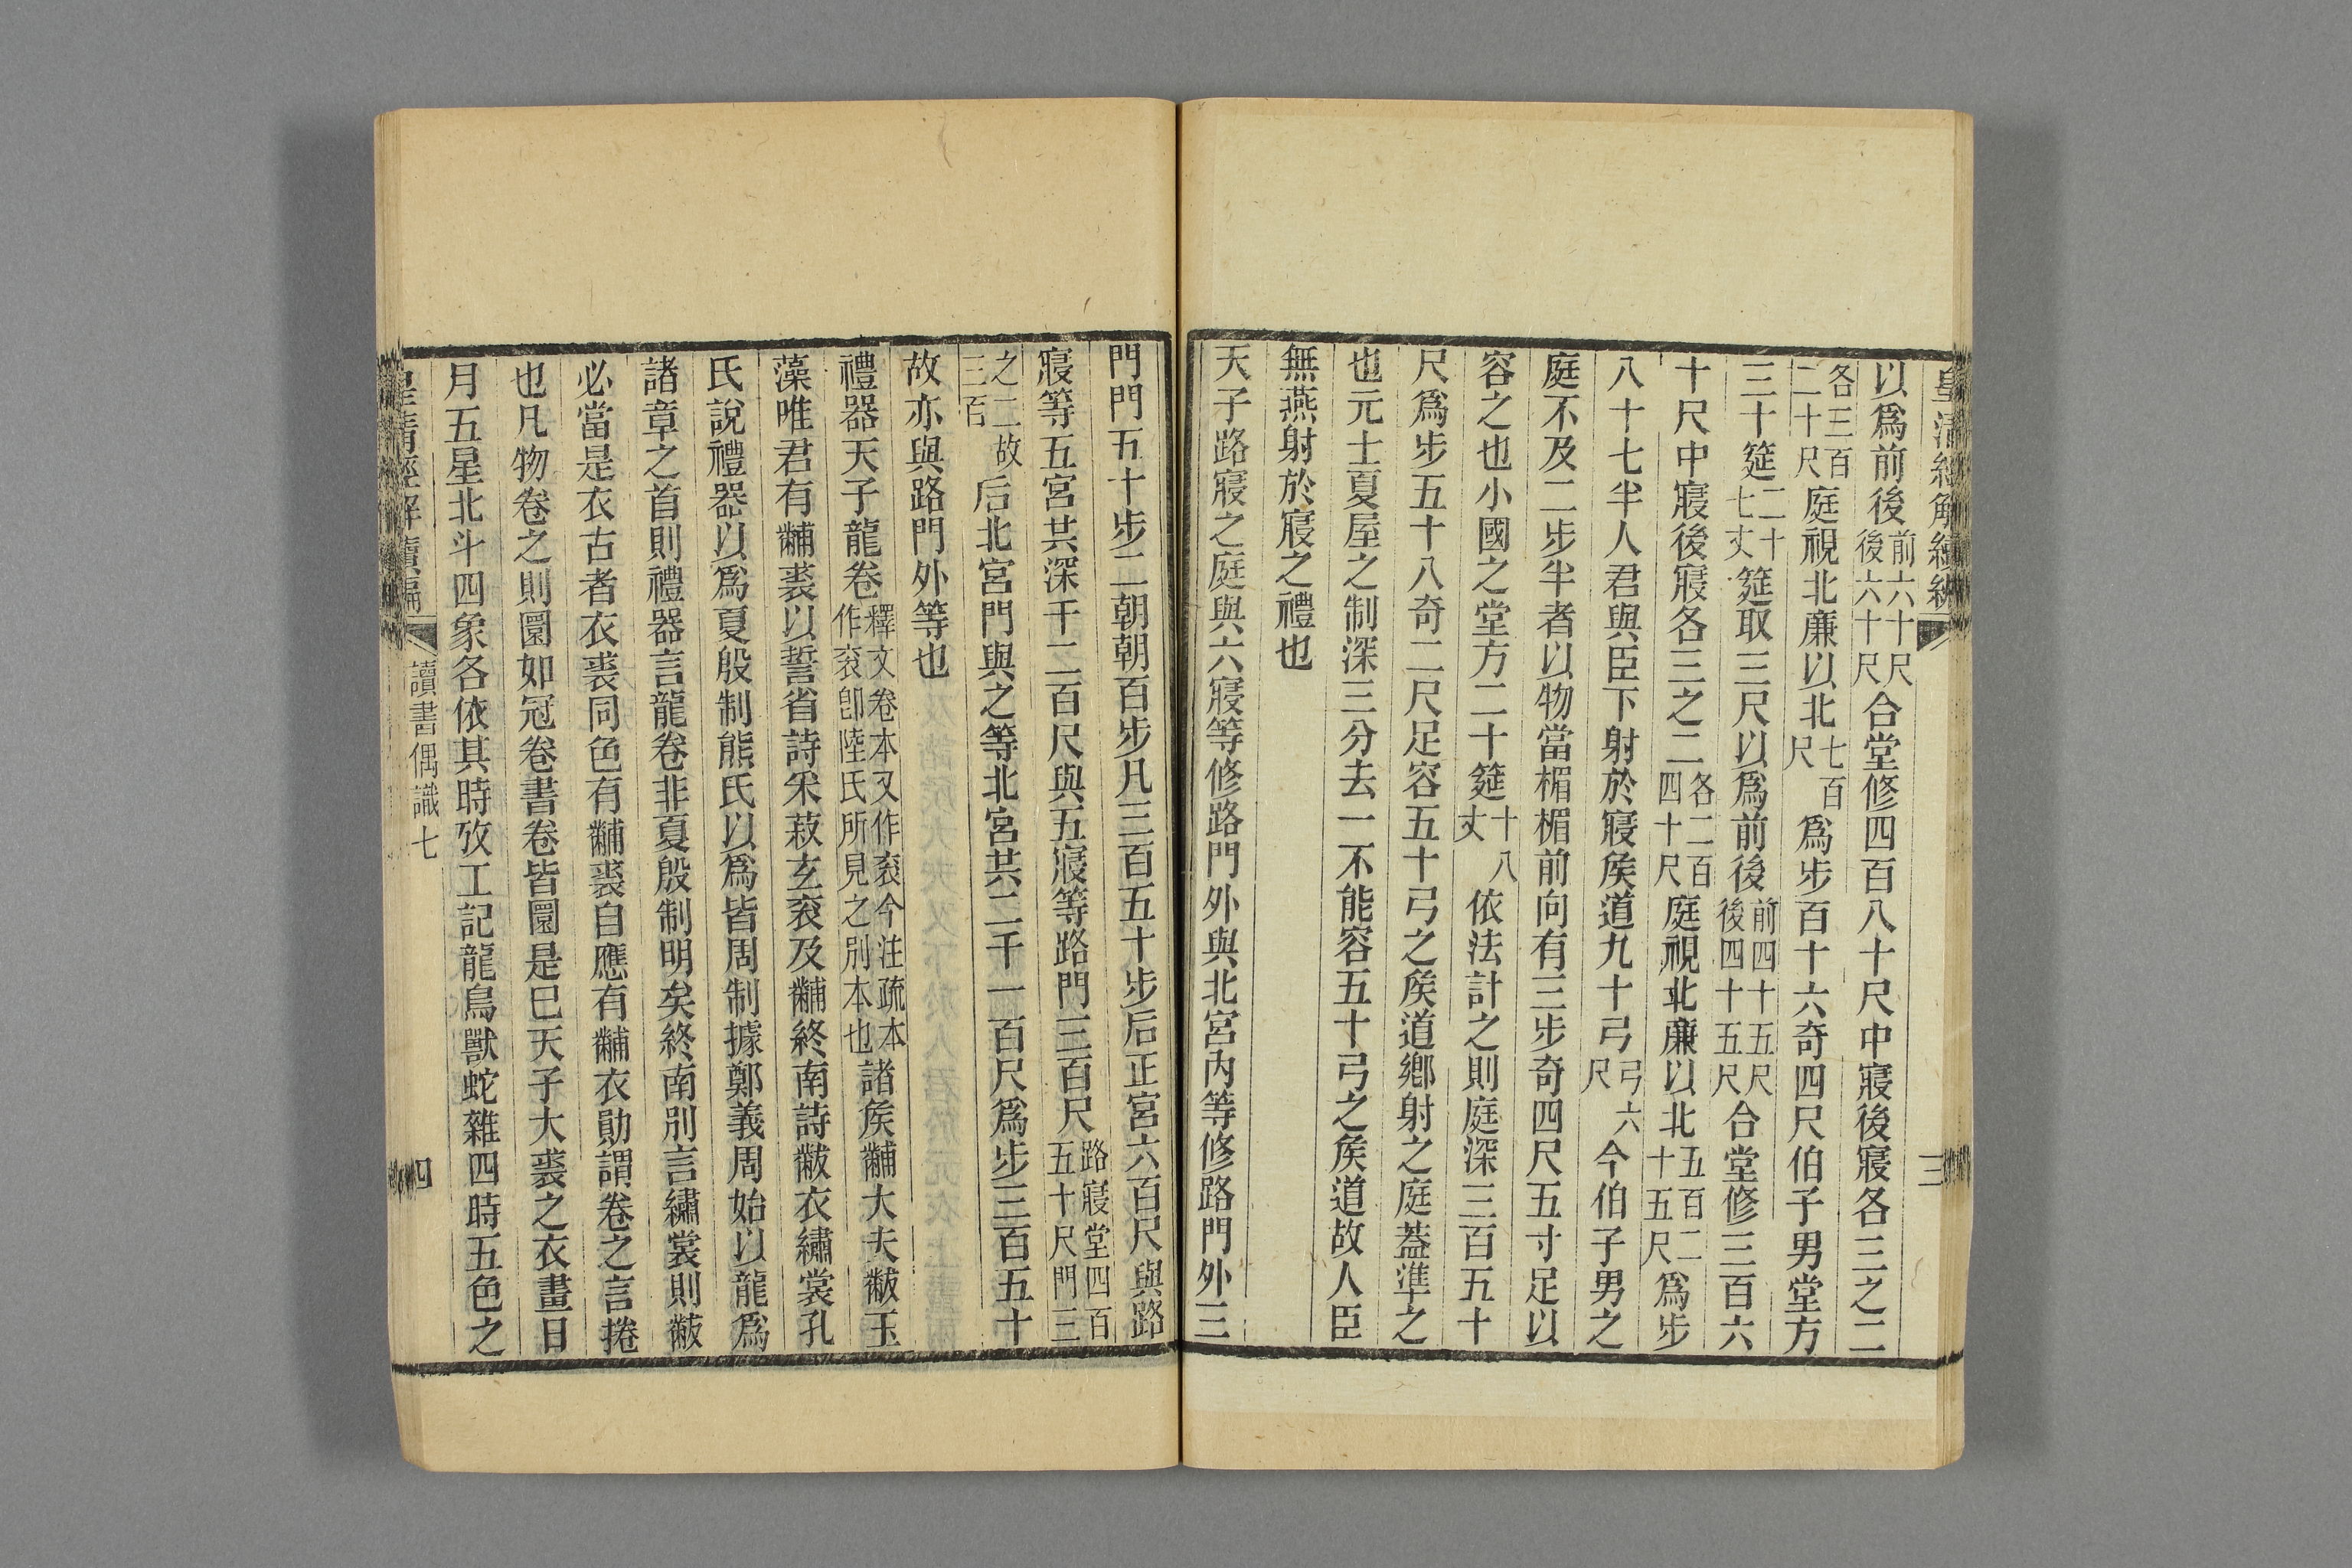 皇清經解續編
三
以爲前後前六十尺後六十尺合堂修四百八十尺中寢後寢各三之二
各三百二十尺庭視北廉以北七百尺爲步百十六奇四尺伯子男堂方
三十筵二十七丈筵取三尺以爲前後前四十五尺後四十五尺合堂修三百六
十尺中寢後寢各三之二各二百四十尺庭視北廉以北五百二十五尺爲步
八十七半人君與臣下射於寢矦道九十弓弓六尺今伯子男之
庭不及二步半者以物當楣楣前向有三步奇四尺五寸足以
容之也小國之堂方二十筵十八丈依法計之則庭深三百五十
尺爲步五十八奇二尺足容五十弓之矦道鄉射之庭蓋準之
也元士夏屋之制深三分去一不能容五十弓之矦道故人臣
無燕射於寢之禮也
天子路寢之庭與六寢等修路門外與北宮內等修路門外三
門門五十步二朝朝百步凡三百五十步后正宮六百尺與路
寢等五宮共深千二百尺與五寢等路門三百尺路寢堂四百五十尺門三
之二故三百后北宮門與之等北宮共二千一百尺爲步三百五十
故亦與路門外等也
禮器天子龍卷釋文卷本又作袞今注疏本作袞卽陸氏所見之別本也諸矦黼大夫黻玉
藻唯君有黼裘以誓省詩采菽玄袞及黼終南詩黻衣繡裳孔
氏說禮器以爲夏殷制熊氏以爲皆周制據鄭義周始以龍爲
諸章之首則禮器言龍卷非夏殷制明矣終南別言繡裳則黻
必當是衣古者衣裘同色有黼裘自應有黼衣勛謂卷之言捲
也凡物卷之則圜如冠卷書卷皆圜是已天子大裘之衣畫日
月五星北斗四象各依其時攷工記龍鳥獸蛇雜四時五色之
皇清經解續編
讀書偶識七
四